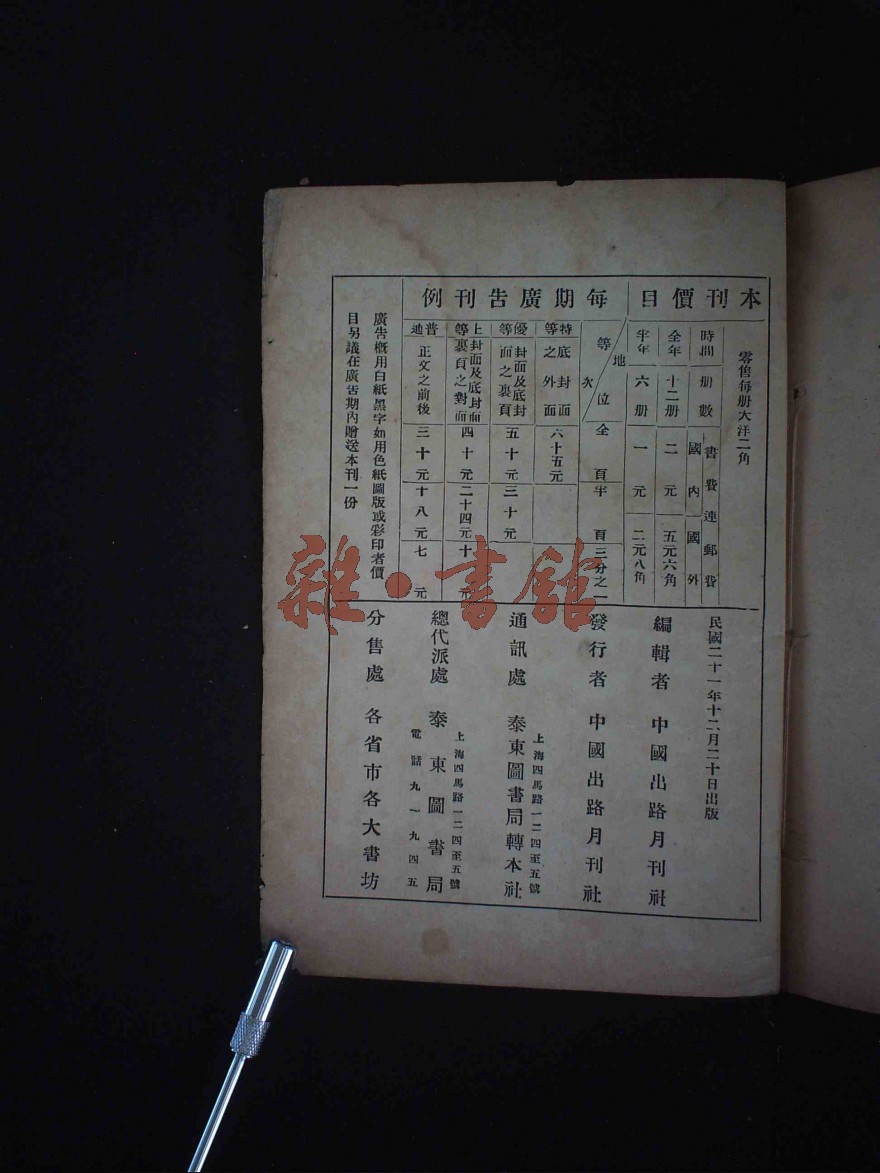 本刊價目
零售每册大洋二角
時間 册數 書費連郵費
國內 國外
全年 十二册 二元 五元六角
半年 六册 一元 二元八角
每期廣告刊例
等次 地位 全頁 半頁 三分之一
特等 底封面之外面 六十五元
優等 封面及底封面之裏頁 五十元 三十元
上等 封面及底封面裏頁之對面 四十元 二十四元 十元
普通 正文之前後 三十元 十八元 七元
廣告概用白紙黑字如用色紙圖版或彩印者價
目另議在廣告期內贈送本刊一份
民國二十一年十二月二十日出版
編輯者 中國出路月刊社
發行者 中國出路月刊社
上海四馬路一二四至五號
通訊處 泰東圖書局轉本社
上海四馬路一二四至五號
總代派處 泰東圖書局
電話九一九四五
分售處 各省市各大書坊
雜·書館